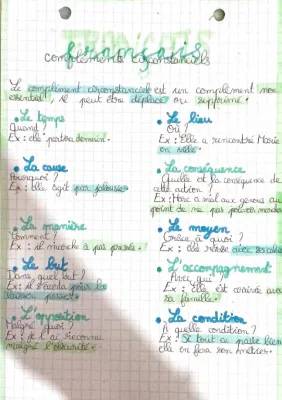 français
compléments circonstanciels
Le complément circonstanciel est un complément non
essentiel, il peut être déplacé ou supprimé.
• Le temps
Quand ?
Ex : elle partira demain.
• Le lieu
Où ?
Ex : Elle a rencontré Marie
en ville.
• La cause
Pourquoi ?
Ex : Elle agit par jalousie.
• La conséquence
Quelle est la conséquence de
cette action ?
Ex : Marc a mal aux genoux au
point de ne pas pouvoir
• La manière
Comment ?
Ex : il marche à pas pressés.
• Le moyen
Grâce à quoi ?
Ex : elle avec
• Le but
Dans quel but ?
Ex : il s'écarta pour les
laisser passer.
• L'accompagnement
Avec qui ?
Ex : Elle est arrivée avec
sa famille.
• L'opposition
Malgré quoi ?
Ex : je l'ai reconnu
malgré l'obscurité.
• La condition
À quelle condition ?
Ex : Si tout se passe bien
elle en fera son métier.